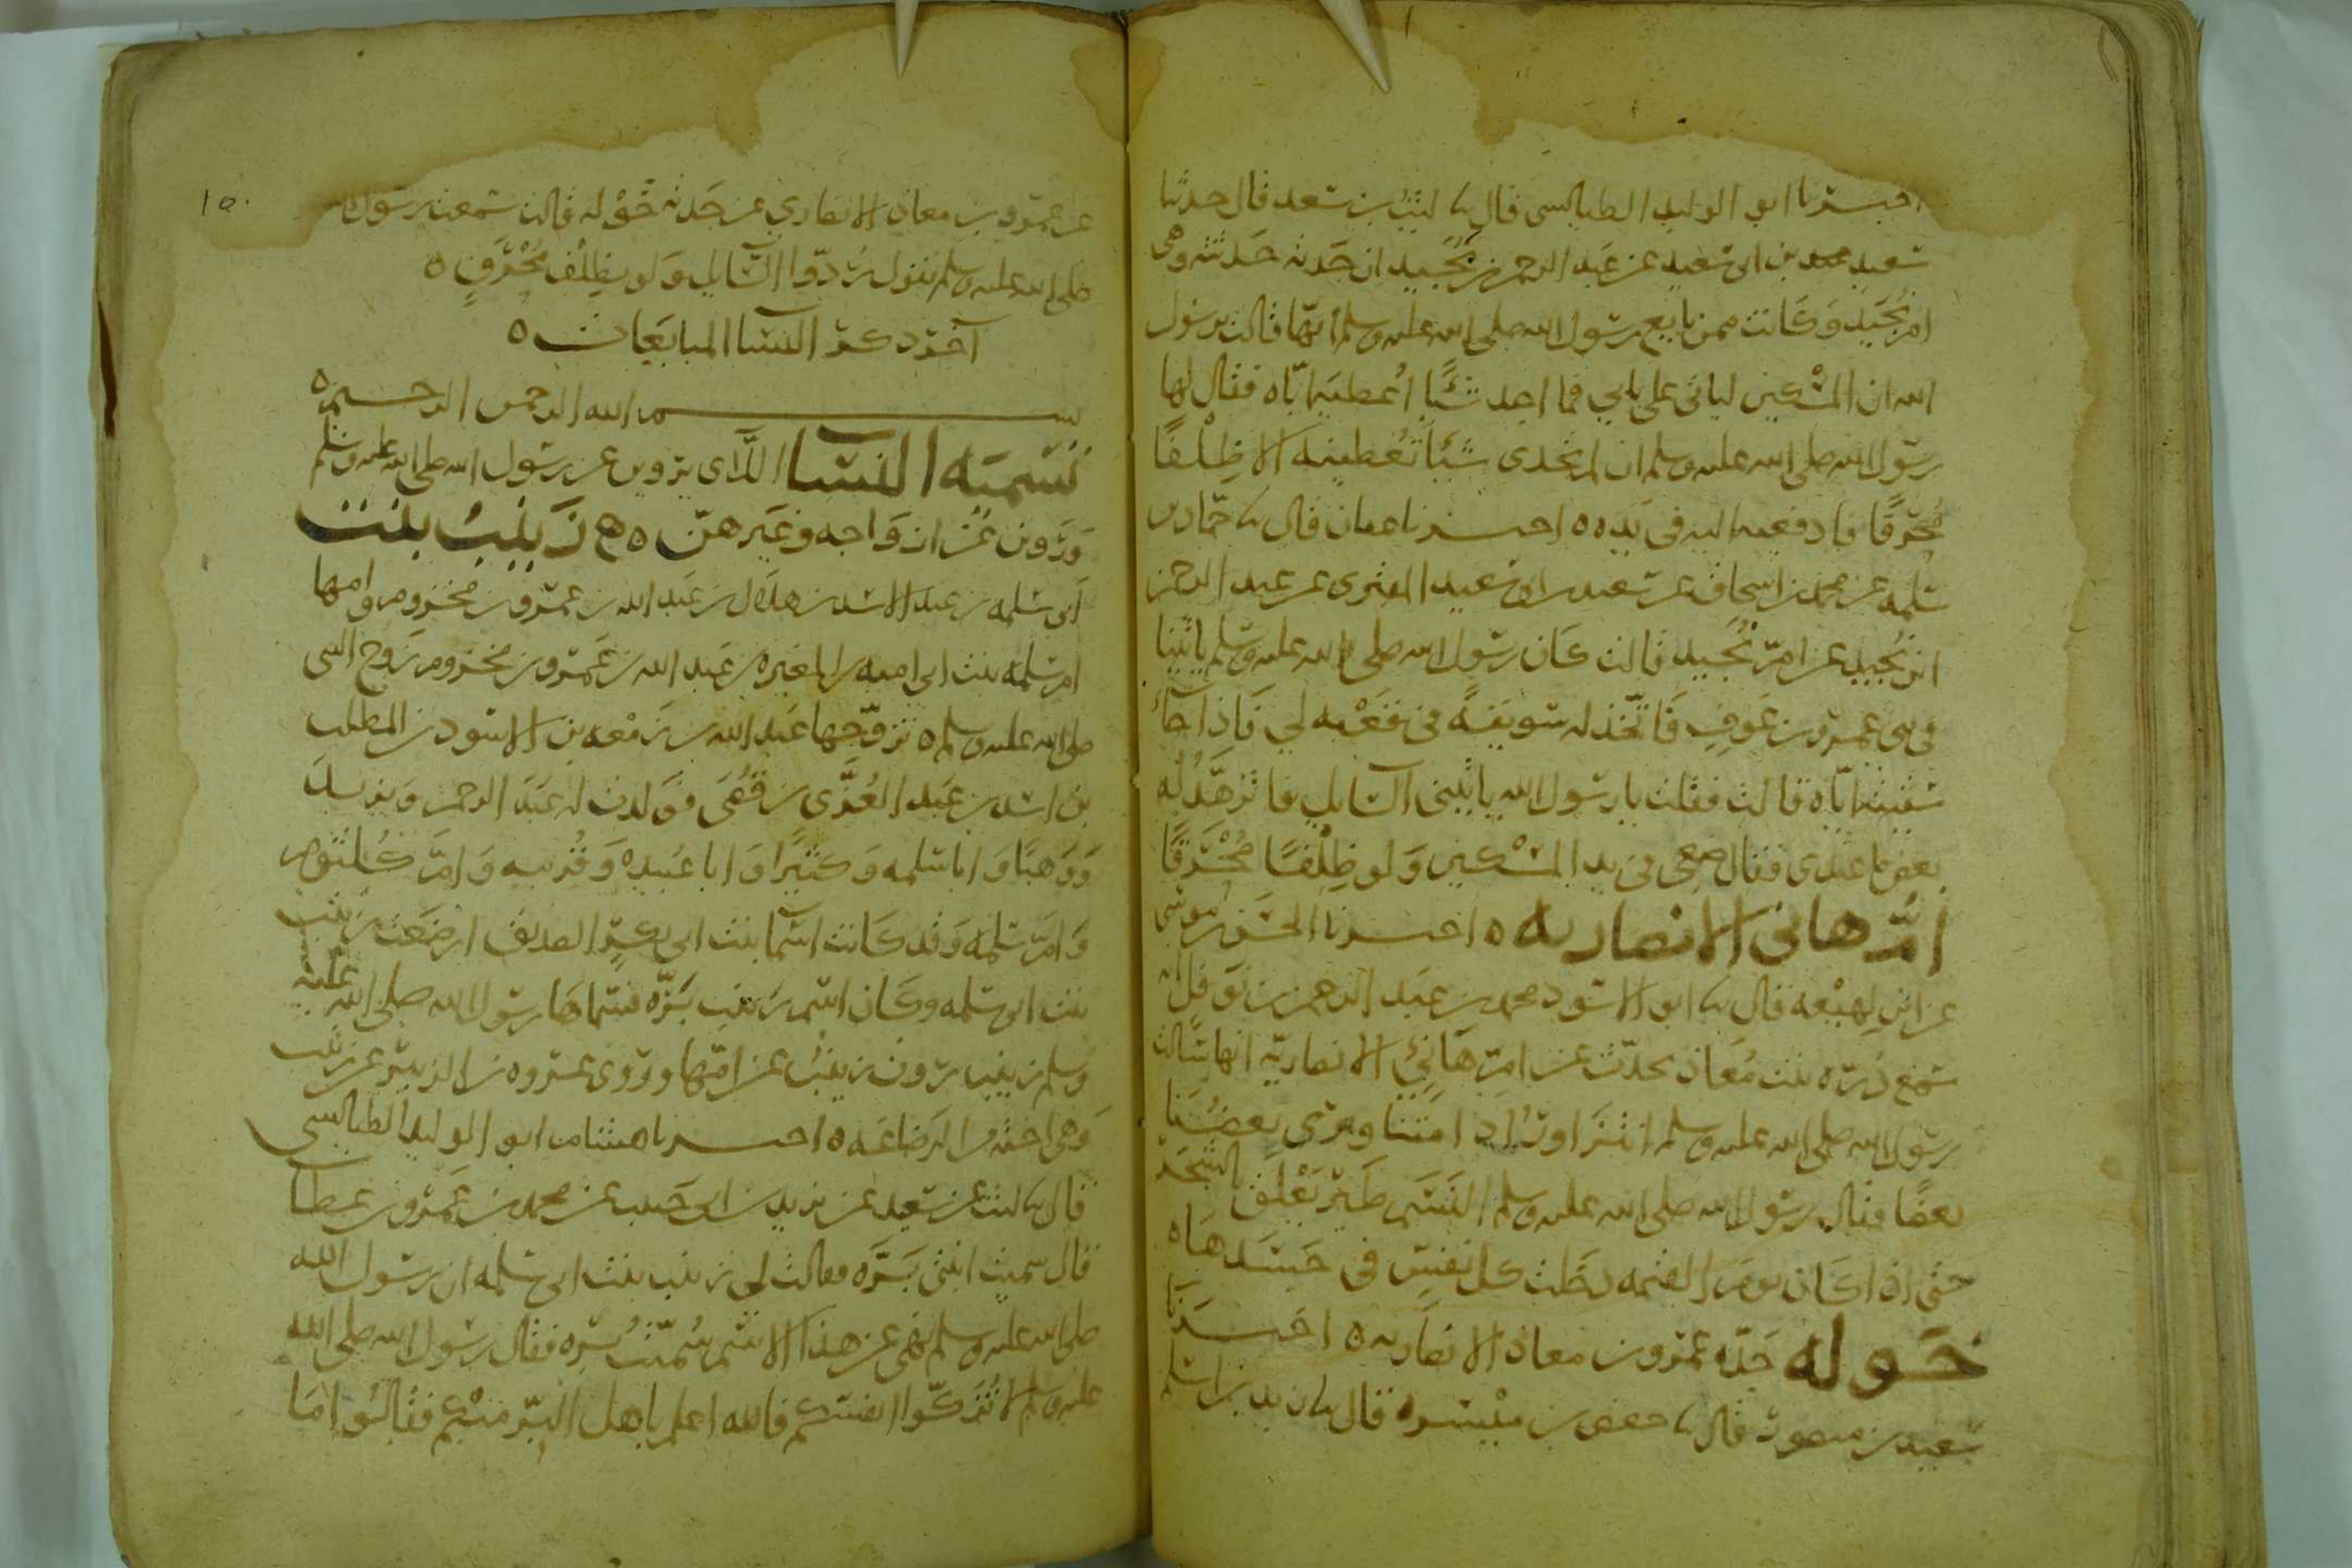 اخبرنا ابو الوليد الطيالسى قال نا ليث بن سعد قال حدثنا
سعيد بن ابى سعيد عن عبد الرحمن بن بُجَيد ان جَدته حَدثته وهى
ام بُجَيد وَكانت ممن بايع رسول الله صلى الله عليه وسلم انّها قالت يرسول
الله ان المسْكين ليأتى على بابي فما اجد شَيًا اُعطيه ايّاه فقال لها
رسول الله صلى الله عليه وسلم ان لم تجدى شيئا تُعطينه الا ظِلْفًا
مُحْرَقًا فادفعيه اليه فى يَدِه ه اخبرنا عفان قال نا حمّاد بن
سلمه عن محمد بن اسحاق عن سعيد بن ابى سعيد المقبرى عن عبد الرحمن
ابن بُجَيد عن امّ بُجَيد قالت كَان رسول الله صلى الله عليه وسلم ياتينا
فى بنى عمرو بن عَوفٍ فَاتّخذ له سَويقةً فى قَعْبه لي فَاذا جآء
سَقيتُه ايّاه قالت فقلت يا رسول الله ياتينى السّائل فاتزهّد له
بعض ما عندى فقال ضعى فى يد المسْكين وَلو ظِلْفًا مُحْرَقًا
امّ هانى الانصاريه ه اخبرنا الحسَن بن موسى
عن ابن لهيْعه قال نا ابو الاسود محمد بن عبد الرحمن بن نوفل انه
سمع دُرّه بنت مُعَاذ تحدّث عن امّ هَانِئٍ الانصاريّه انها سَالت
رسول الله صلى الله عليه وسلم انتَزَاورُ اِذا مِتنا ويَرى بعضُنَا
بعضًا فقال رسول الله صلى الله عليه وسلم النَّسَم طَيْر يَعْلق بالشجَر
حتى اذا كَان يومَ القيمه دخَلت كل نفسٍ فى جَسَدهَا ه
خَوله جَدّه عمرو بن معاذ الانصاريه ه اخبرنا
سَعيد بن منصور قال نا حفص بن ميْسَره قال نا زيد بن اسلم
١٥٠
عن عمرو بن معاذ الانصاري عن جَدته خَوْله قالت سمعت رسول الله
صلى الله عليه وسلم يقول رُدّوا السّائل وَلو بِظِلْف مُحْرَقٍ ه
آخر ذكر النسآ المبايَعات ه
بسم الله الرحمن الرحيم ه
تسميَه النسآ اللّاتى يروين عن رسول الله صلى الله عليه وسلم
وَرَوين عن ازوَاجه وغيَرهنّ ه زَينَبُ بنت
اَبى سَلمه بن عبد الاسد بن هلَال بن عَبد الله بن عمرو بن مخزوم وامها
ام سلمه بنت ابى اميه بن المغيره بن عَبد الله بن عَمرو بن مخزوم زوج النبى
صلى الله عليه وسلم ه تزوّجها عَبد الله بن زَمْعه بن الاسود بن المطلب
بن اسد بن عَبد العُزّى بن قُصَى فوَلدت له عَبَد الرحمن وَيزيد
وَوَهبًا وَابا سلمه وَكثيرًا وَابا عُبيده وَقُريبه وَامّ كُلثوم
وَامّ سلمه وَقد كَانت اسمآ بنت ابى بكرٍ الصديق ارضَعَت زينب
بنت ابى سلمه وكَان اسم زينب بَرّه فسمّاهَا رسول الله صلى الله عليه
وسلم زينب تروى زينبُ عن امّها وروى عروه بن الزبير عن زينب
وَهى اخته من الرَضاعَه ه اخبرنا هشام ابو الوليد الطيالسى
قال نا ليث عن يزيد بن ابى حَبيب عن محمد بن عَمرو بن عَطآ
قال سميت ابنتى بَرَّه فقالت لي زينب بنت ابى سلمه ان رسول الله
صلى الله عليه وسلم نهى عن هذا الاسم سُمّيتُ بَرّه فقال رسول الله صلى الله
عليه وسلم لا تُزكّوا انفسَكم فالله اعلم باهل البِرّ منكم فقالُوا مَا